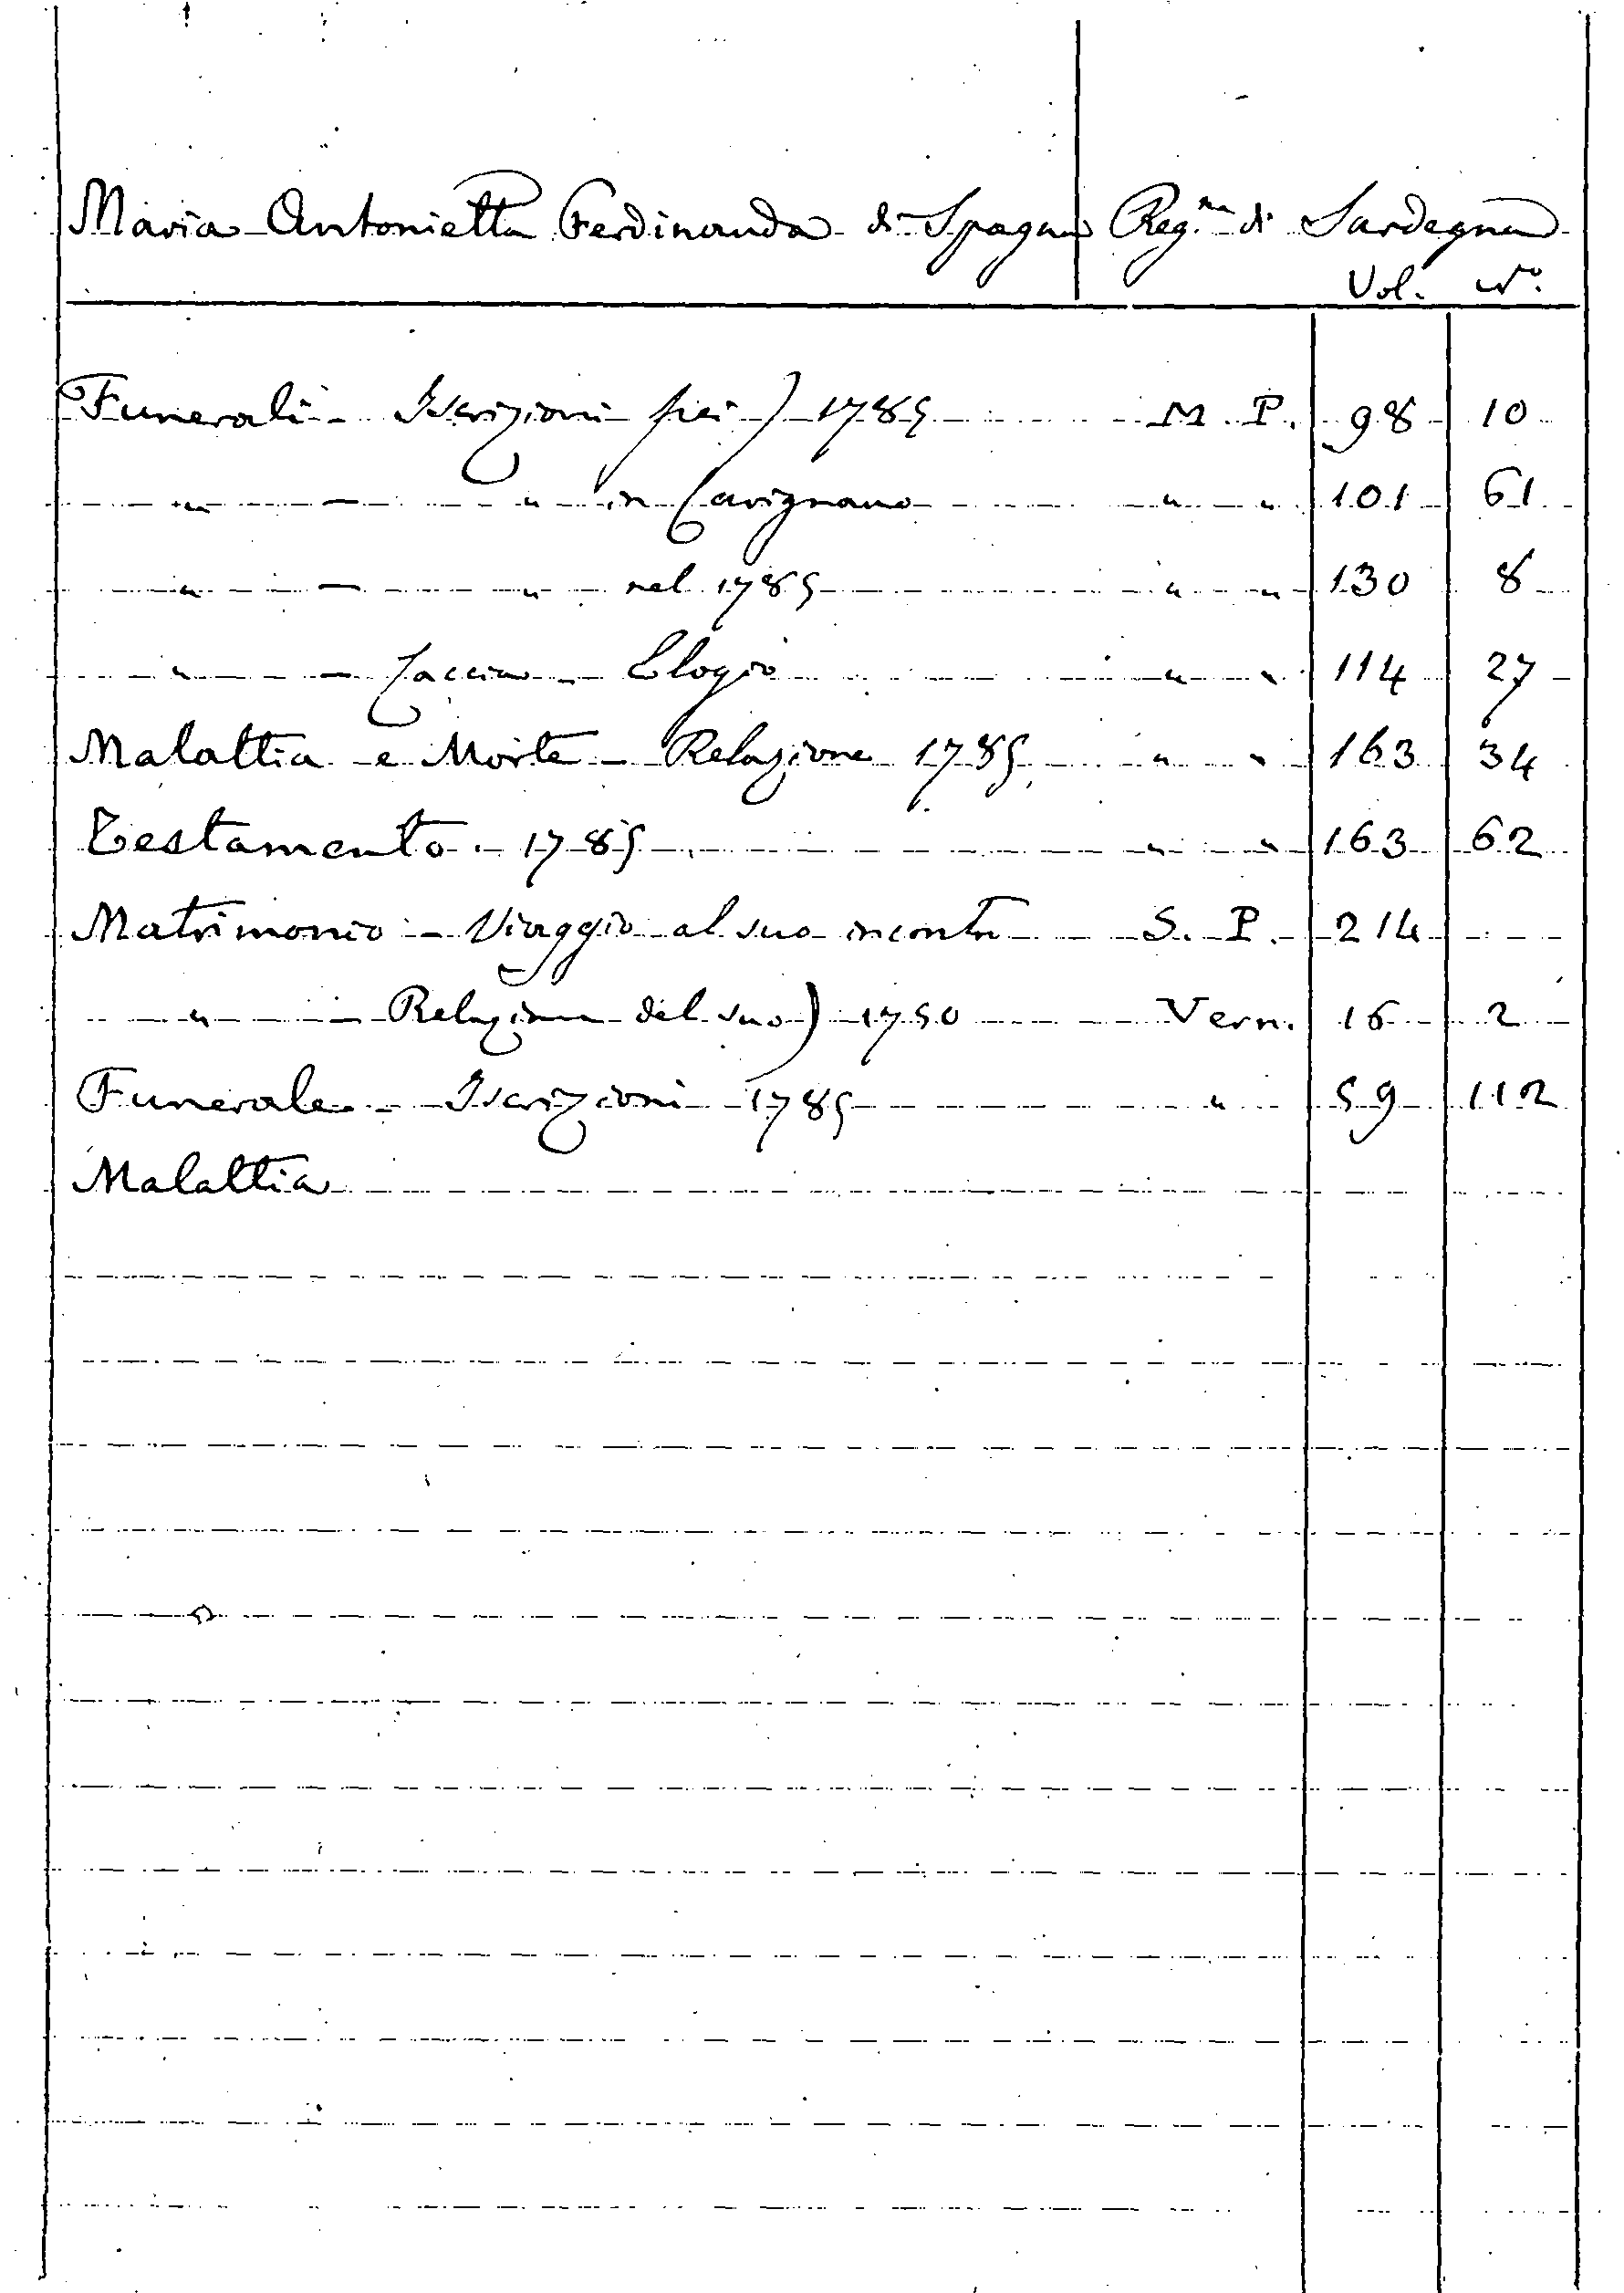 Maria Antonietta Ferdinanda di Spagna Reg.na di Sardegna
Vol. N.o
Funerali - Iscrizioni pei) 1785 M. P. 98 10
" — " in Carignano " " 101 61
" — " nel 1785 " " 130 8
" — Caccia - Elogio " " 114 27
Malattia e Morte - Relazione 1785 " " 163 34
Testamento. 1785 " " 163 62
Matrimonio - Viaggio al suo incontro S. P. 214
" - Relazione del suo) 1750 Vern. 16 2
Funerale - Iscrizioni 1785 " 59 112
Malattia